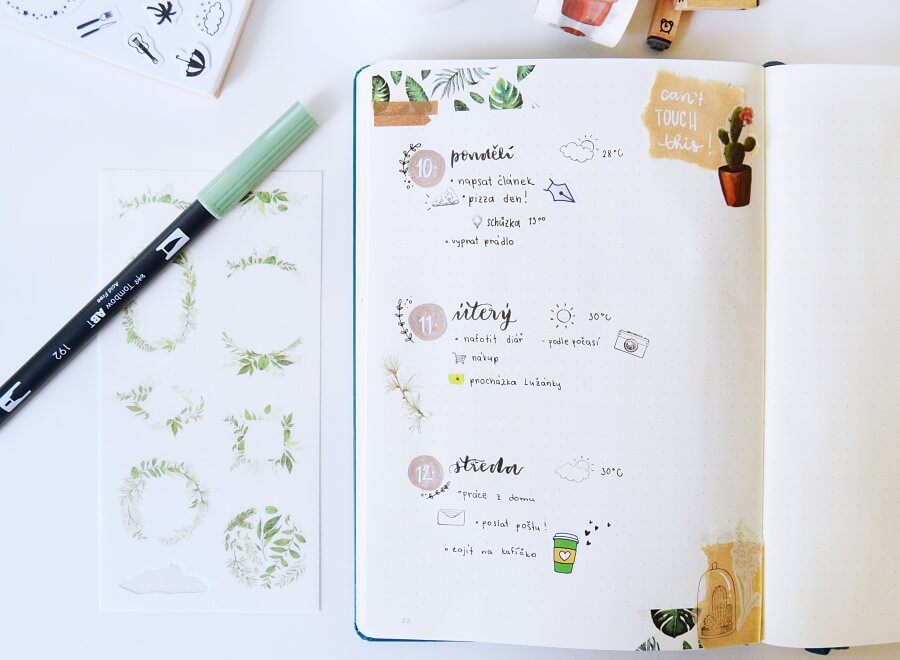 can't
TOUCH
this!
10. pondělí 28°C
• napsat článek
• pizza den!
schůzka 13⁰⁰
• vyprat prádlo
11. úterý 30°C
• nafotit diář - podle počasí
nákup
procházka Lužánky
12. středa 30°C
• práce z domu
• poslat poštu!
• zajít na kafíčko
22
Tombow ABT
Acid Free
192